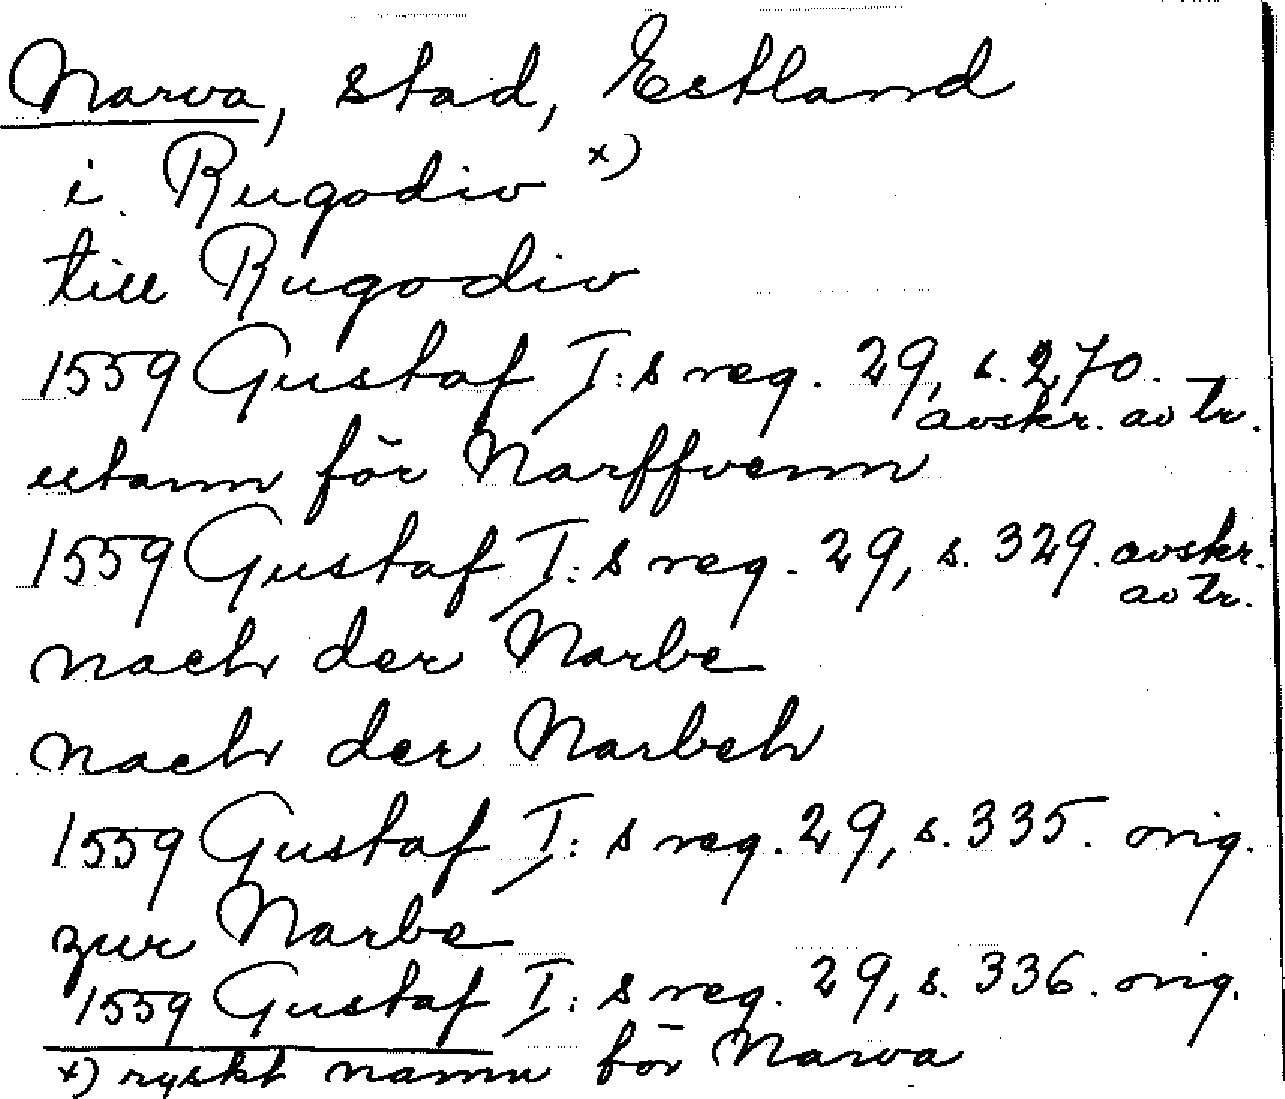 Narva, stad, Estland
i Rugodiv x)
till Rugodiv
1559 Gustaf I:s reg. 29, s. 270.
avskr. av tr.
utann för Narffvenn
1559 Gustaf I:s reg. 29, s. 329. avskr.
av tr.
nach der Narbe
nach der Narbeh
1559 Gustaf I:s reg. 29, s. 335. orig.
zur Narbe
1559 Gustaf I:s reg. 29, s. 336. orig.
x) ryskt namn för Narva